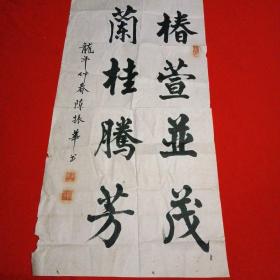 椿萱並茂
蘭桂騰芳
龍年仲春陳振華書